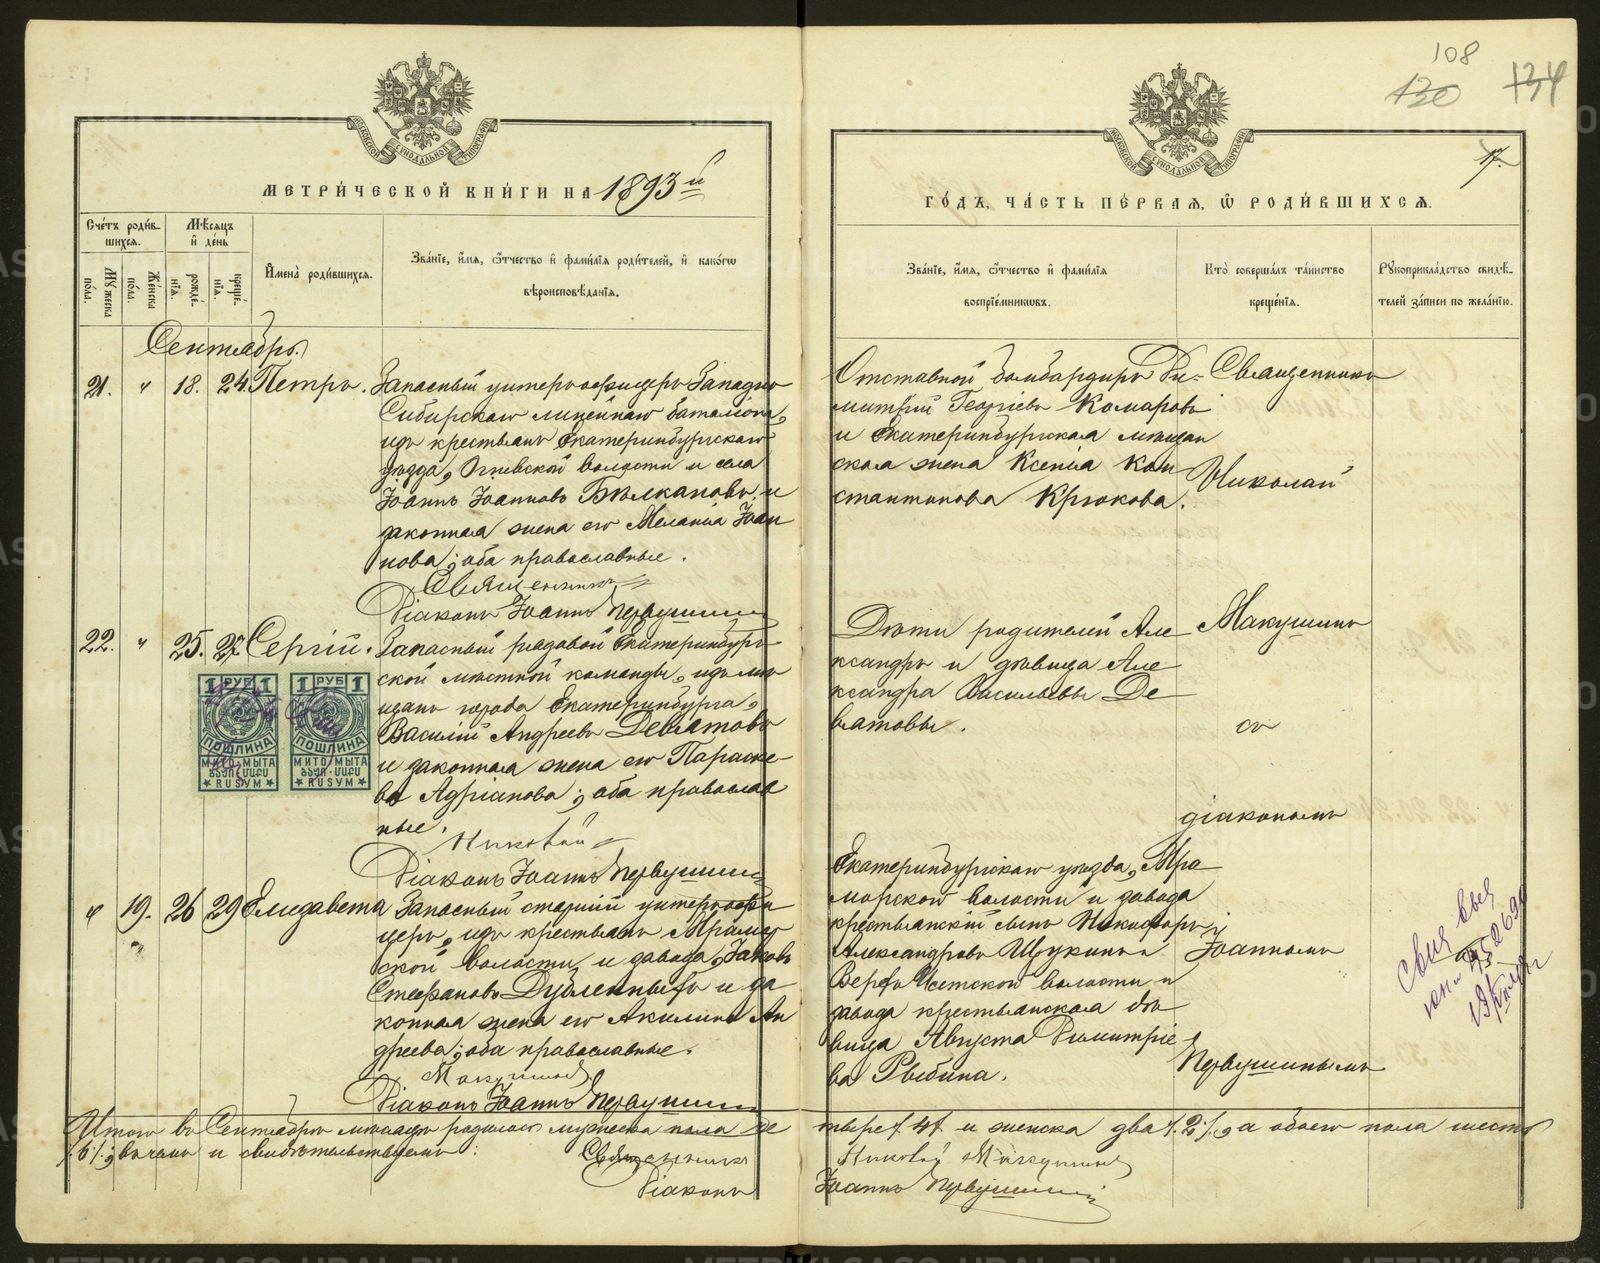 108
130
134
17.
МЕТРИ́ЧЕСКОЙ КНИ́ГИ НА 1893 й
ГО́ДЪ, ЧА́СТЬ ПЕ́РВАЯ, Ѽ РОДИ́ВШИХСѦ.
Счетъ роди́в-
шихся.
Мѣсяцъ
и день
Мужеска
пола.
Женска
пола.
рожде-
нія.
креще-
нія.
Имена̀ роди́вшихся.
Зва́ніе, и́мя, о́тчество и фами́лія роди́телей, и како́го
вѣроисповѣданія.
Зва́ніе, и́мя, о́тчество и фами́лія
воспріе́мниковъ.
Кто̀ соверша́лъ та́инство
креще́нія.
Рукоприкла́дство свидѣ-
телей за́писи по жела́нію.
Сентябрь.
21. " 18. 24 Петръ.
Запасный унтеръ-офицеръ Западно
Сибирскаго линейнаго баталіона,
изъ крестьянъ Екатеринбургскаго
уѣзда, Огневской волости и села
Іоаннъ Іоанновъ Бѣлкановъ и
законная жена его Меланія Іоан
нова; оба православные.
Священникъ
Діаконъ Іоаннъ Первушинъ
Отставной бомбардиръ Ди-
митрій Георгіевъ Комаровъ
и Екатеринбургская мѣщан
ская жена Ксенія Кон
стантинова Крюкова.
Священникъ
Николай
Макушинъ
съ
діакономъ
Іоанномъ
Первушинымъ
22. " 25. 27 Сергій.
Запасный рядовой Екатеринбург-
ской мѣстной команды, изъ мѣ
щанъ города Екатеринбурга,
Василій Андреевъ Девятовъ
и законная жена его Параске-
ва Адріанова; оба православ
ные.
Николай
Діаконъ Іоаннъ Первушинъ
Дѣти родителей Але
ксандръ и дѣвица Але
ксандра Васильевы Де
вятовы.
1 РУБ 1
ПОШЛИНА
МИТО МЫТА
RUSYM
1 РУБ 1
ПОШЛИНА
МИТО МЫТА
RUSYM
" 19. 26 29 Елизавета
Запасный старшій унтеръ-офи
церъ, изъ крестьянъ Мрамор
ской волости и завода, Іаковъ
Стефановъ и за
конная жена его Акилина Ан
дреева; оба православные.
Макушинъ
Діаконъ Іоаннъ Первушинъ
Екатеринбургскаго уѣзда, Мра
морской волости и завода
крестьянскій сынъ Никифоръ
Александровъ Щукинъ и
Верхъ Исетской волости и
завода крестьянская дѣ
вица Августа Димитріе
ва Рыбина.
Итого въ Сентябрѣ мѣсяцѣ родилось мужеска пола че
тыре /.4/. и женска два /.2/., а обоего пола шесть
/.6/., въ чемъ и свидѣтельствуемъ:
Священникъ Николай Макушинъ
Діаконъ Іоаннъ Первушинъ